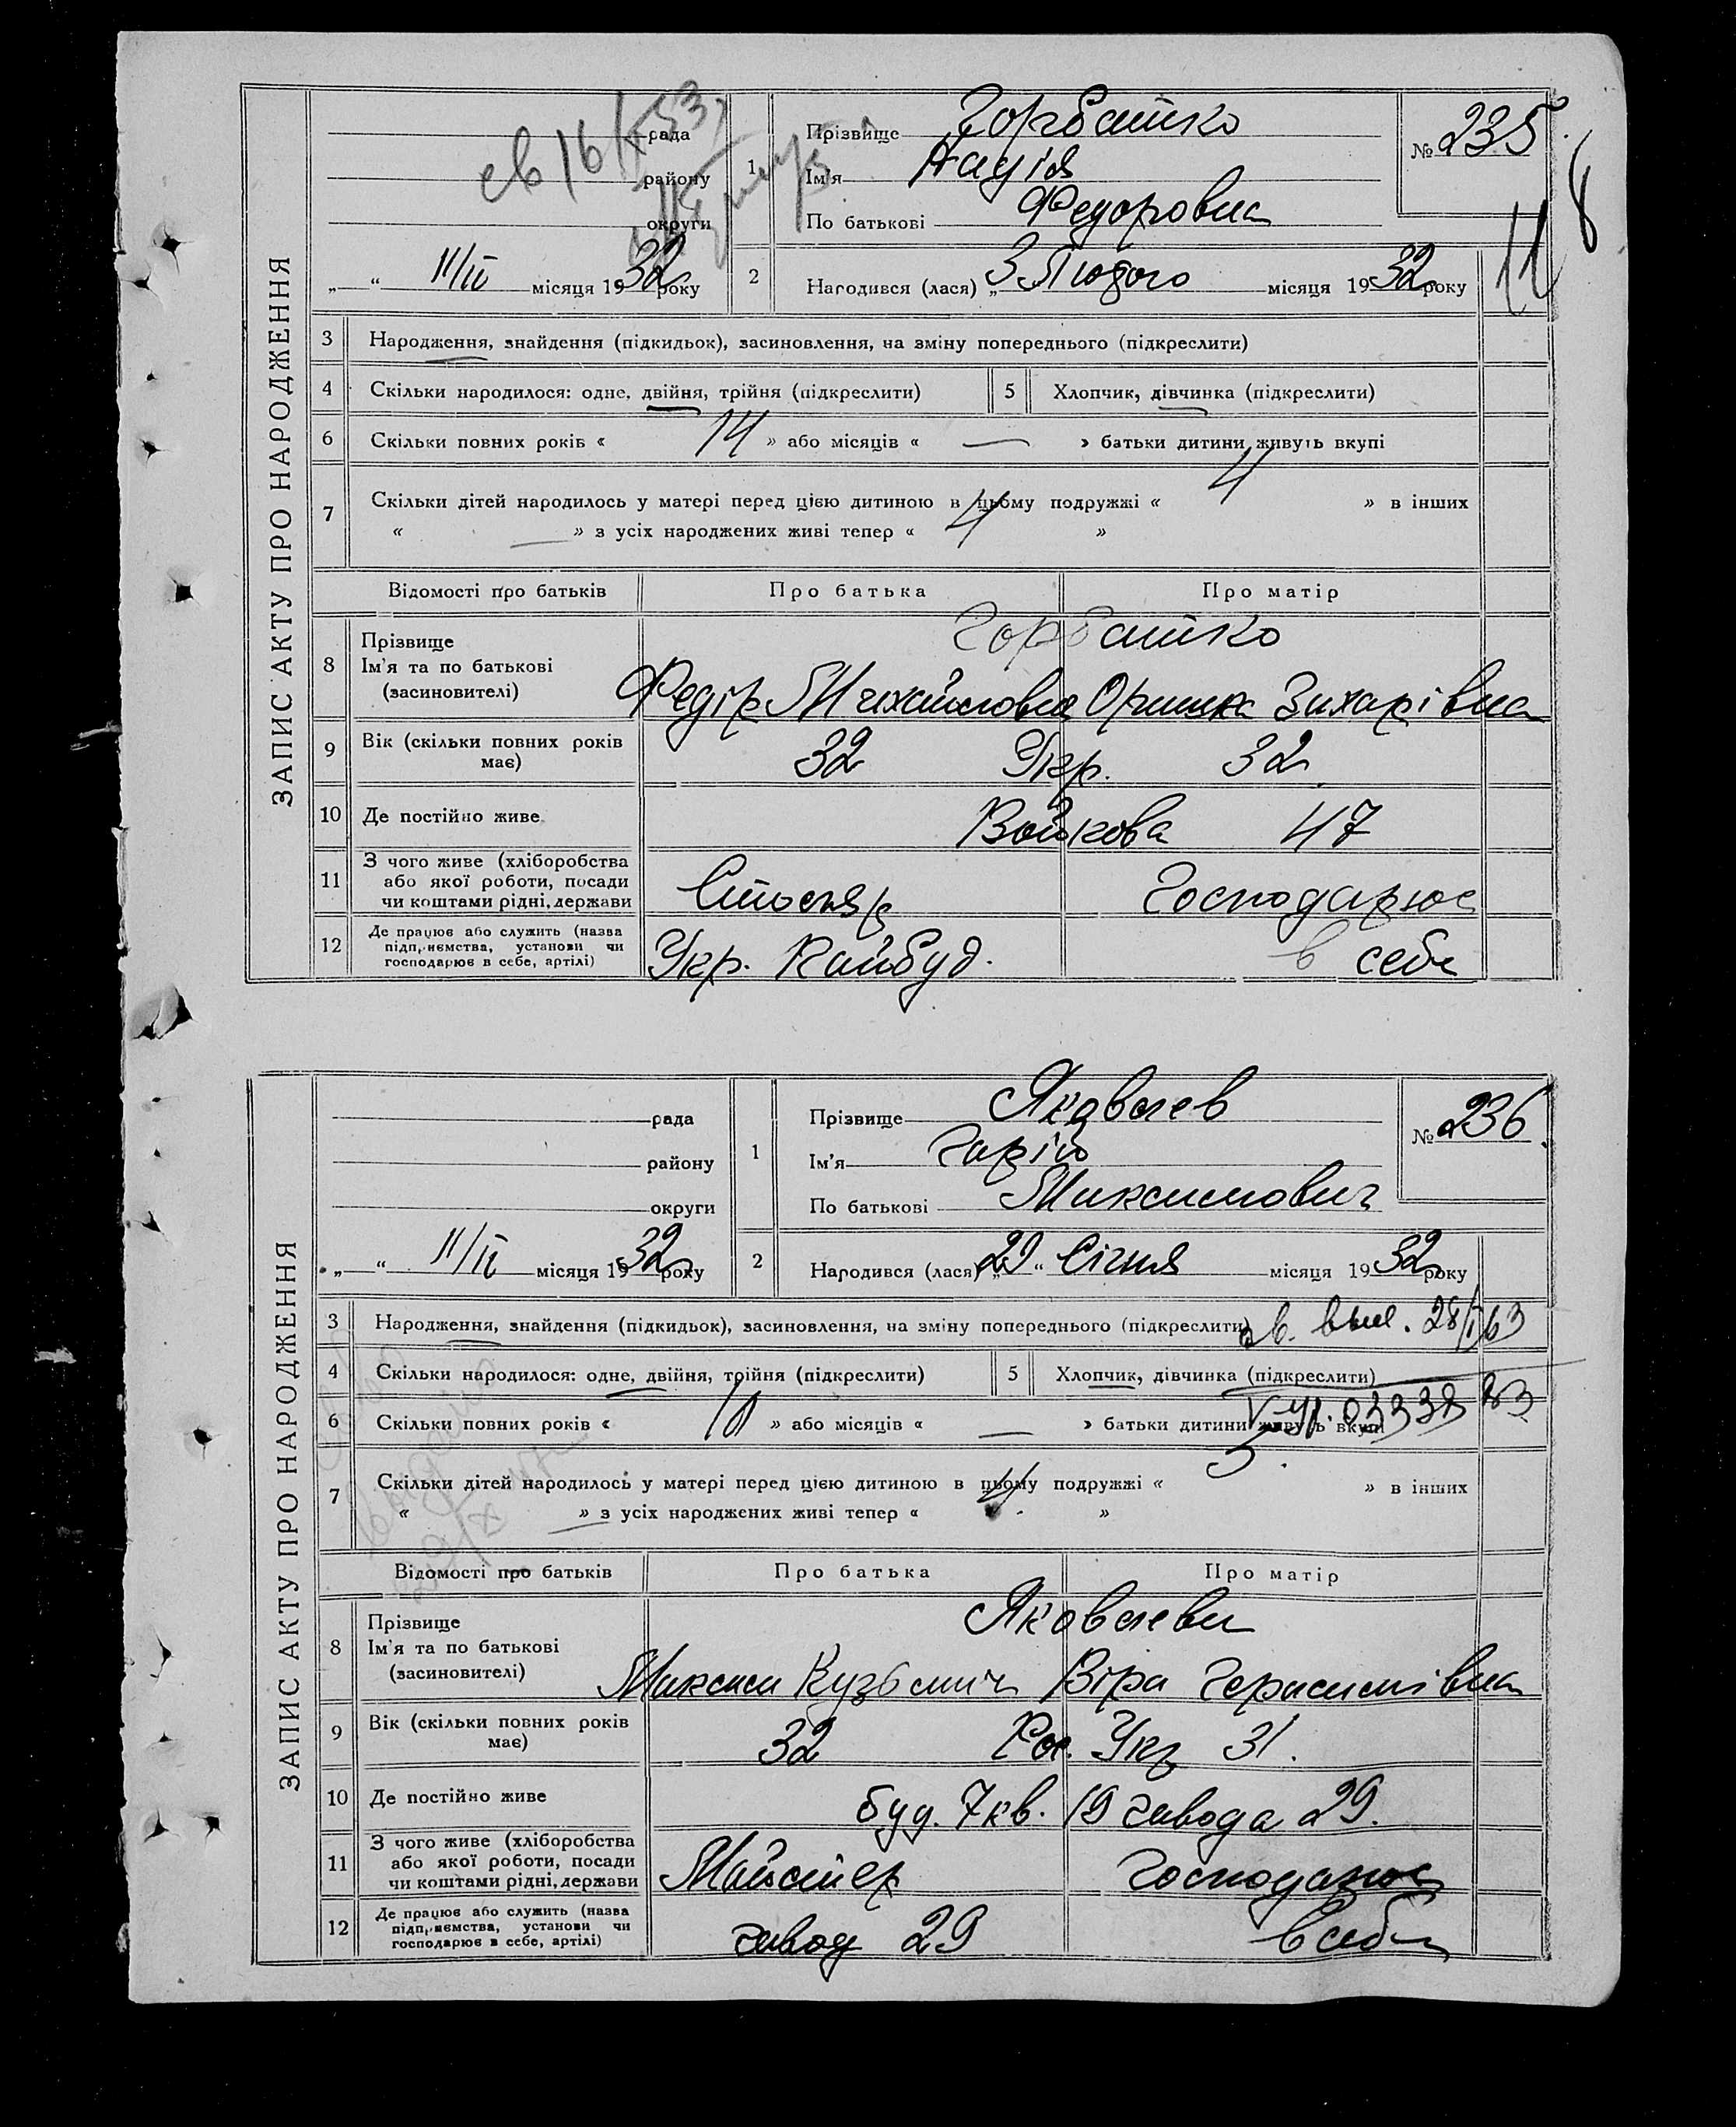 ЗАПИС АКТУ ПРО НАРОДЖЕННЯ
рада
району
округи
св 16/ 53
„ “ 11/II місяця 1932 року
1 Прізвище Горбатко
Ім'я Надія
По батькові Федоровна
№ 235
118
2 Народився (лася) „3 Лютого місяця 1932 року
3 Народження, знайдення (підкидьок), засиновлення, на зміну попереднього (підкреслити)
4 Скільки народилося: одне, двійня, трійня (підкреслити) 5 Хлопчик, дівчинка (підкреслити)
6 Скільки повних років « 14 » або місяців « — » батьки дитини живуть вкупі
7 Скільки дітей народилось у матері перед цією дитиною в цьому подружжі « 4 » в інших
« — » з усіх народжених живі тепер « 4 »
Відомості про батьків Про батька Про матір
8 Прізвище Горбатко
Ім'я та по батькові
(засиновителі) Федір Михайлович Оришка Захарівна
9 Вік (скільки повних років має) 32 Укр. 32
10 Де постійно живе Войкова 47
11 З чого живе (хліборобства
або якої роботи, посади
чи коштами рідні, держави Столяр Господарює
12 Де працює або служить (назва
підприємства, установи чи
господарює в себе, артілі) Укр. Райбуд. в себе
ЗАПИС АКТУ ПРО НАРОДЖЕННЯ
рада
району
округи
„ “ 11/II місяця 1932 року
1 Прізвище Яковлев
Ім'я Гарій
По батькові Максимович
№ 236.
2 Народився (лася) „29“ Січня місяця 1932 року
3 Народження, знайдення (підкидьок), засиновлення, на зміну попереднього (підкреслити) св. вып. 28/I 63
4 Скільки народилося: одне, двійня, трійня (підкреслити) 5 Хлопчик, дівчинка (підкреслити)
6 Скільки повних років « 10 » або місяців « — » батьки дитини живуть вкупі
7 Скільки дітей народилось у матері перед цією дитиною в цьому подружжі « 5 » в інших
« — » з усіх народжених живі тепер « 4 »
Відомості про батьків Про батька Про матір
8 Прізвище Яковлеви
Ім'я та по батькові
(засиновителі) Максим Кузьмич Віра Герасимівна
9 Вік (скільки повних років має) 32 Рос. Укр 31.
10 Де постійно живе буд. 7 кв. 19 завода 29.
11 З чого живе (хліборобства
або якої роботи, посади
чи коштами рідні, держави Майстер Господарює
12 Де працює або служить (назва
підприємства, установи чи
господарює в себе, артілі) завод 29 в себе